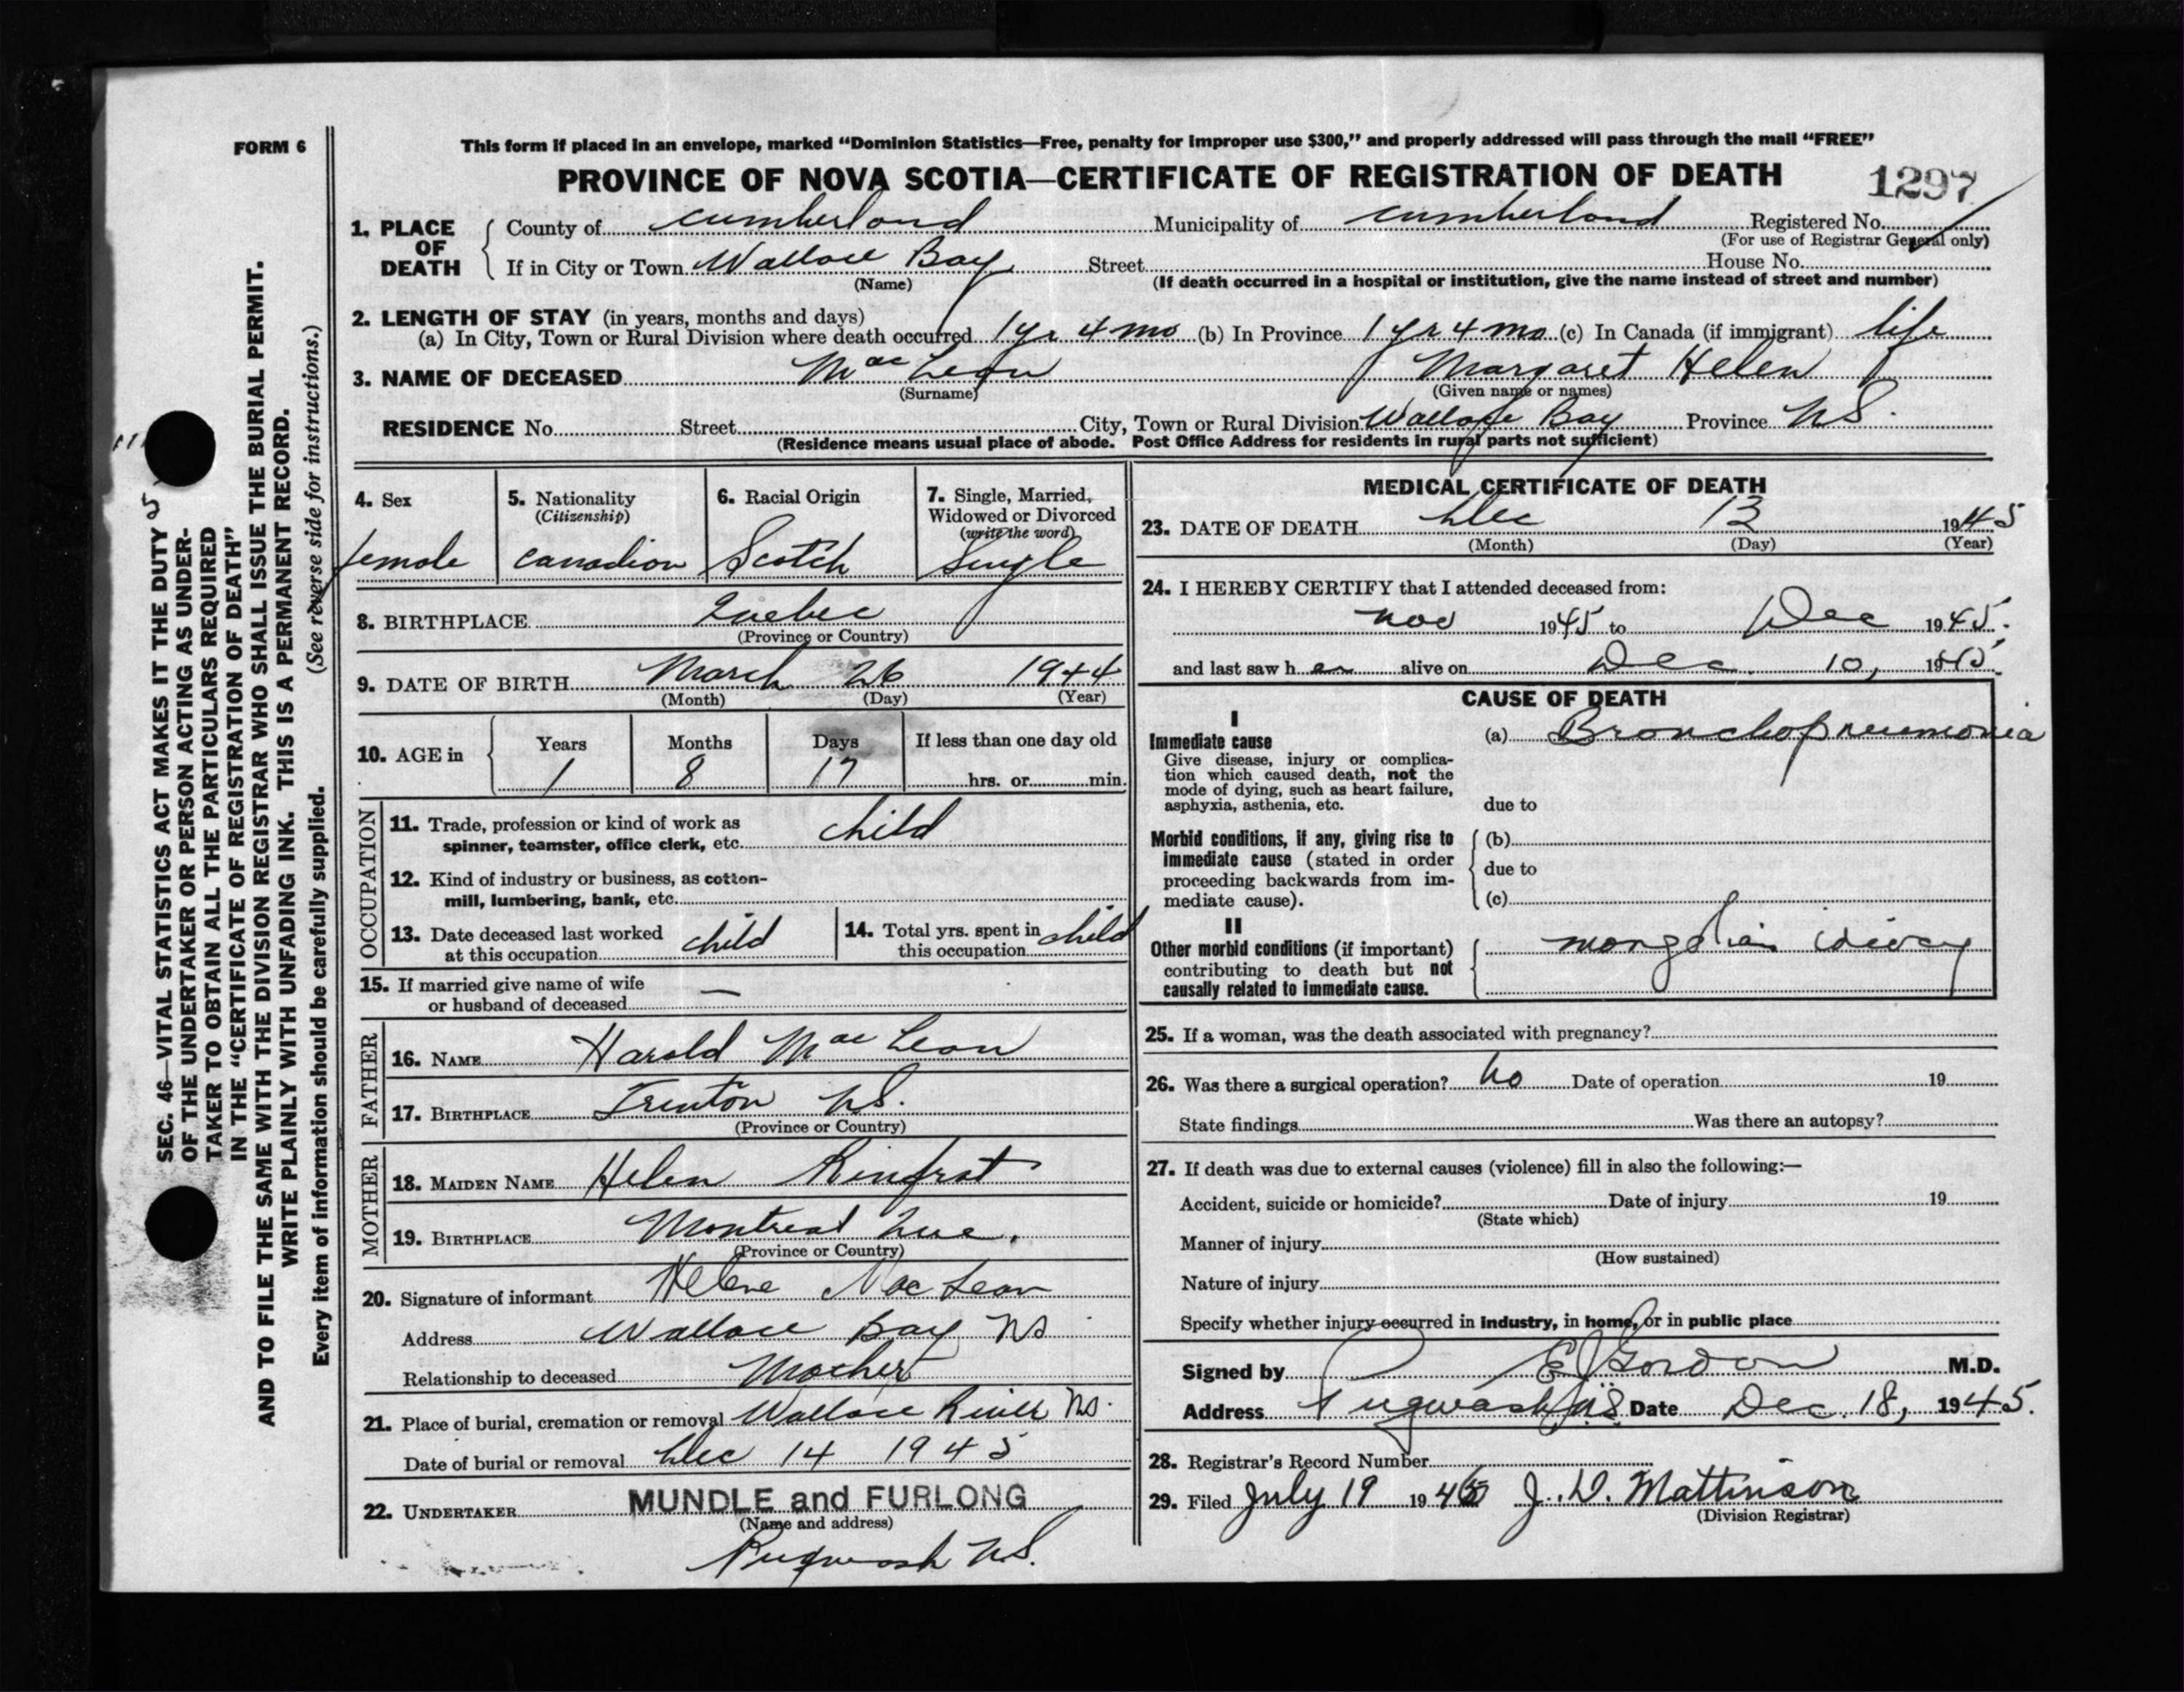 FORM 6
This form if placed in an envelope, marked "Dominion Statistics—Free, penalty for improper use $300," and properly addressed will pass through the mail "FREE"
PROVINCE OF NOVA SCOTIA—CERTIFICATE OF REGISTRATION OF DEATH
1297
1. PLACE OF DEATH County of Cumberland Municipality of Cumberland Registered No.
(For use of Registrar General only)
If in City or Town Wallace Bay Street House No.
(Name) (If death occurred in a hospital or institution, give the name instead of street and number)
2. LENGTH OF STAY (in years, months and days)
(a) In City, Town or Rural Division where death occurred 1 yr 4 mo (b) In Province 1 yr 4 mo (c) In Canada (if immigrant) life
3. NAME OF DECEASED MacLean Margaret Helen
(Surname) (Given name or names)
RESIDENCE No. Street City, Town or Rural Division Wallace Bay Province NS.
(Residence means usual place of abode. Post Office Address for residents in rural parts not sufficient)
4. Sex 5. Nationality 6. Racial Origin 7. Single, Married,
(Citizenship) Widowed or Divorced
(write the word)
female Canadian Scotch Single
8. BIRTHPLACE Quebec
(Province or Country)
9. DATE OF BIRTH March 26 1944
(Month) (Day) (Year)
10. AGE in Years Months Days If less than one day old
1 8 17 hrs. or min.
OCCUPATION
11. Trade, profession or kind of work as
spinner, teamster, office clerk, etc. child
12. Kind of industry or business, as cotton-
mill, lumbering, bank, etc.
13. Date deceased last worked
at this occupation child
14. Total yrs. spent in
this occupation child
15. If married give name of wife
or husband of deceased —
FATHER
16. NAME Harold MacLean
17. BIRTHPLACE Trenton NS.
(Province or Country)
MOTHER
18. MAIDEN NAME Helen Rinfrat
19. BIRTHPLACE Montreal Que.
(Province or Country)
20. Signature of informant Helene MacLean
Address Wallace Bay NS
Relationship to deceased Mother
21. Place of burial, cremation or removal Wallace River NS.
Date of burial or removal Dec 14 1945
22. UNDERTAKER MUNDLE and FURLONG
(Name and address)
Pugwash N.S.
MEDICAL CERTIFICATE OF DEATH
23. DATE OF DEATH Dec 13 1945
(Month) (Day) (Year)
24. I HEREBY CERTIFY that I attended deceased from:
Nov 1945 to Dec 1945.
and last saw her alive on Dec. 10, 1945
CAUSE OF DEATH
I
Immediate cause
Give disease, injury or complica-
tion which caused death, not the
mode of dying, such as heart failure,
asphyxia, asthenia, etc.
(a) Bronchopneumonia
due to
Morbid conditions, if any, giving rise to
immediate cause (stated in order
proceeding backwards from im-
mediate cause).
(b)
due to
(c)
II
Other morbid conditions (if important)
contributing to death but not
causally related to immediate cause.
mongolian idiocy
25. If a woman, was the death associated with pregnancy?
26. Was there a surgical operation? no Date of operation 19
State findings Was there an autopsy?
27. If death was due to external causes (violence) fill in also the following:—
Accident, suicide or homicide? Date of injury 19
(State which)
Manner of injury
(How sustained)
Nature of injury
Specify whether injury occurred in industry, in home, or in public place
Signed by E J Gordon M.D.
Address Pugwash N.S. Date Dec. 18, 1945.
28. Registrar's Record Number
29. Filed July 19 19 J. D. Mattinson
(Division Registrar)
SEC. 46—VITAL STATISTICS ACT MAKES IT THE DUTY
OF THE UNDERTAKER OR PERSON ACTING AS UNDER-
TAKER TO OBTAIN ALL THE PARTICULARS REQUIRED
IN THE "CERTIFICATE OF REGISTRATION OF DEATH"
AND TO FILE THE SAME WITH THE DIVISION REGISTRAR WHO SHALL ISSUE THE BURIAL PERMIT.
WRITE PLAINLY WITH UNFADING INK. THIS IS A PERMANENT RECORD.
Every item of information should be carefully supplied. (See reverse side for instructions.)